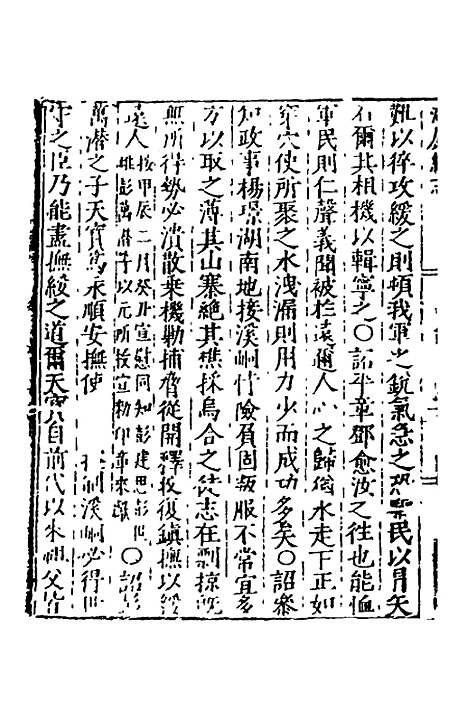 難以猝攻緩之則頓我軍之銳氣急之恐民以冒矢
石爾其相機以輯寧之○詔平章鄧愈汝之徃也能恤
軍民則仁聲義聞被於遠邇人心之歸猶水走下正如
穴使所聚之水洩漏則用力少而成功多矣○詔叅
知政事楊璟湖南地接溪峒恃險負固叛服不常宜多
方以取之薄其山寨絕其樵採烏合之徒志在剽掠旣
無所得勢必潰散乗機勒捕脅從開釋投復鎮撫以綏
遠人按甲辰二月癸丑宣慰同知彭建思彭世雄彭萬潛等以元所授宣勑印章來獻○詔
萬潜之子天寳爲永順安撫使溪峒必得世
守之臣乃能盡撫綏之道爾天寳自前代以來祖父皆